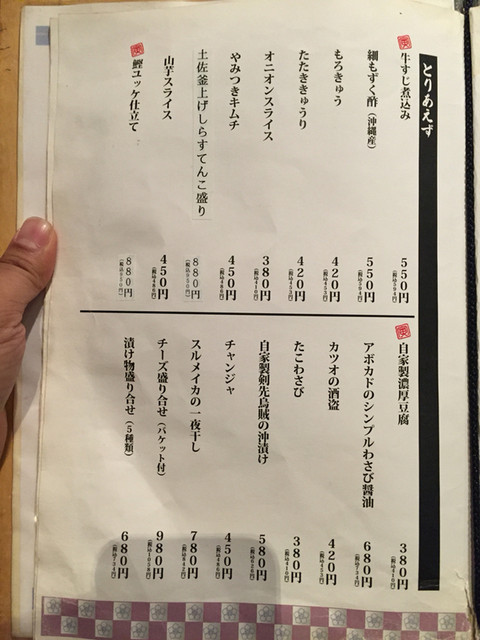 とりあえず
牛すじ煮込み 550円 (税込594円)
細もずく酢(沖縄産) 550円 (税込594円)
もろきゅう 420円 (税込453円)
たたききゅうり 420円 (税込453円)
オニオンスライス 380円 (税込410円)
やみつきキムチ 450円 (税込486円)
土佐釜上げしらすてんこ盛り 880円 (税込950円)
山芋スライス 450円 (税込486円)
鰹ユッケ仕立て 880円 (税込950円)
自家製濃厚豆腐 380円 (税込410円)
アボカドのシンプルわさび醤油 680円 (税込734円)
カツオの酒盗 420円 (税込453円)
たこわさび 380円 (税込410円)
自家製剣先烏賊の沖漬け 580円 (税込626円)
チャンジャ 450円 (税込486円)
スルメイカの一夜干し 780円 (税込842円)
チーズ盛り合せ(バケット付) 980円 (税込1058円)
漬け物盛り合せ(5種類) 680円 (税込734円)